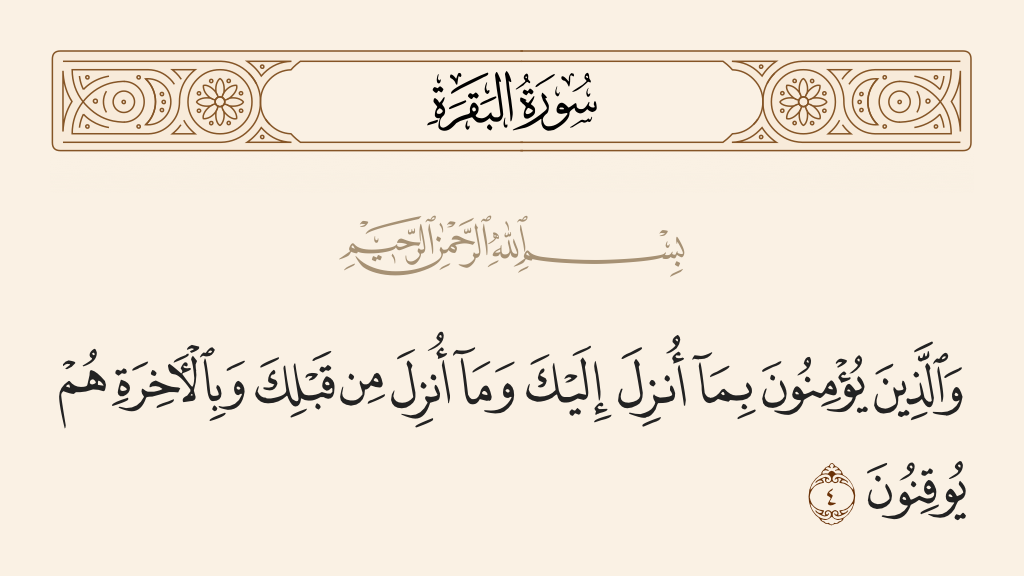 سُورَةُ البَقَرَةِ
بِسْمِ ٱللَّهِ ٱلرَّحْمَٰنِ ٱلرَّحِيمِ
وَٱلَّذِينَ يُؤْمِنُونَ بِمَآ أُنزِلَ إِلَيْكَ وَمَآ أُنزِلَ مِن قَبْلِكَ وَبِٱلْأَخِرَةِ هُمْ
يُوقِنُونَ ٤